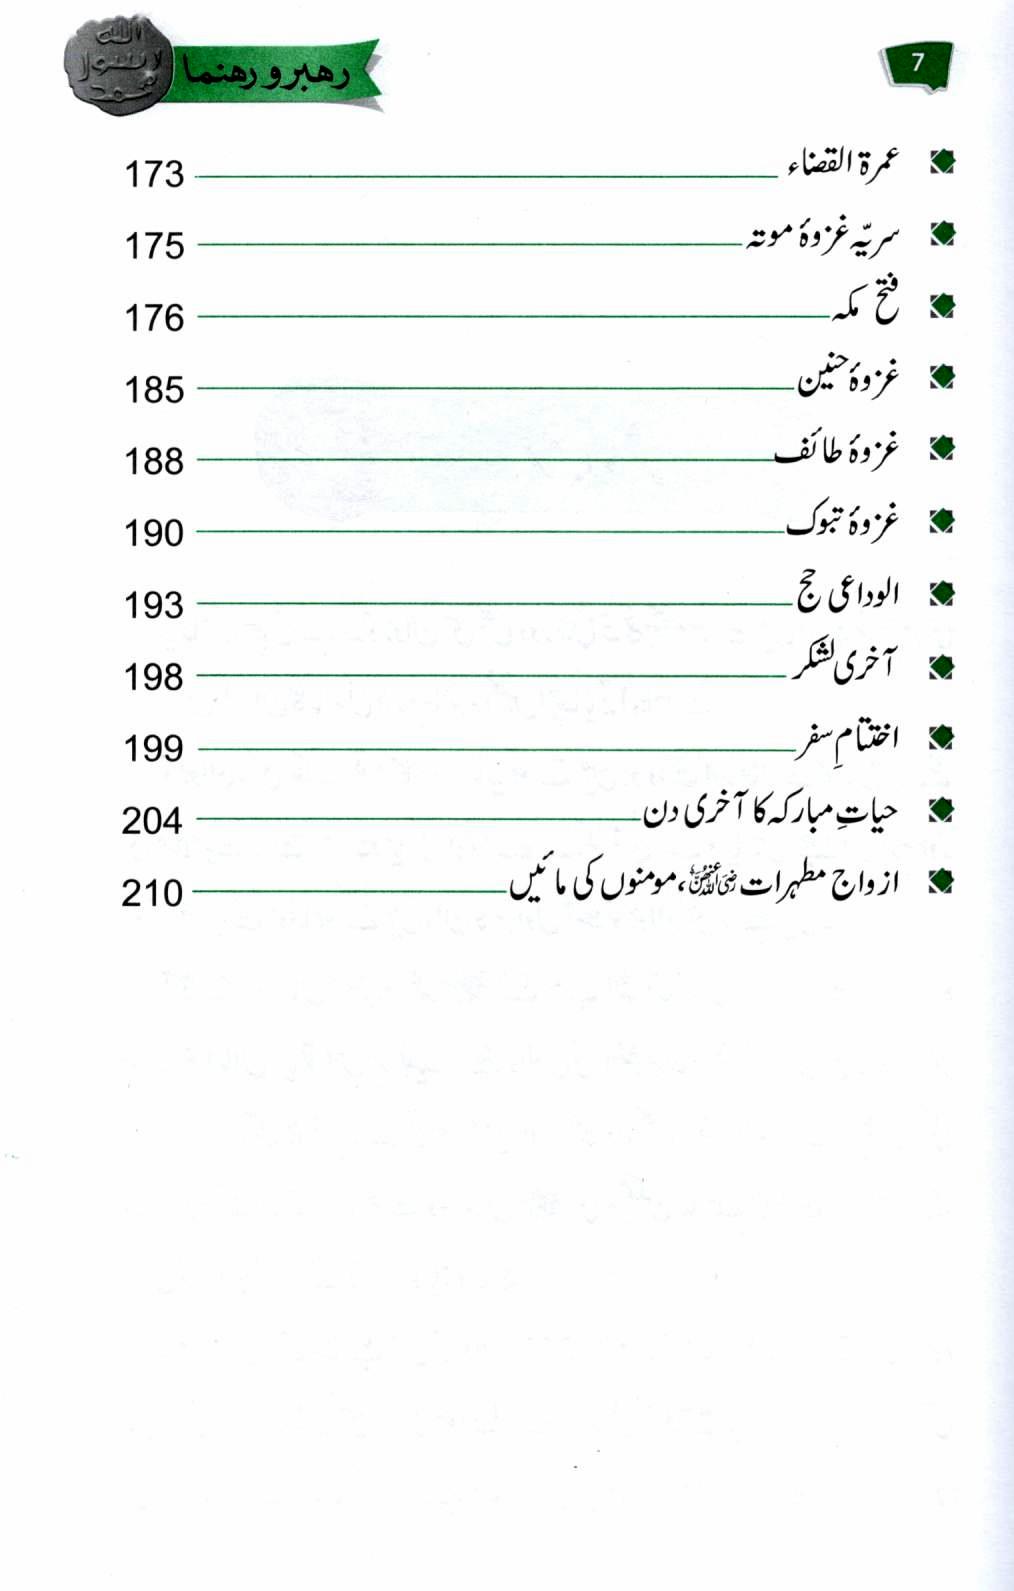 7
رهبر و رهنما
الله
رسول
محمد
عمرة القضاء 173
سریّہ غزوۂ موتہ 175
فتح مکہ 176
غزوۂ حنین 185
غزوۂ طائف 188
غزوۂ تبوک 190
الوداعی حج 193
آخری لشکر 198
اختتامِ سفر 199
حیاتِ مبارکہ کا آخری دن 204
ازواج مطہرات رضی اللہ عنہن، مومنوں کی مائیں 210